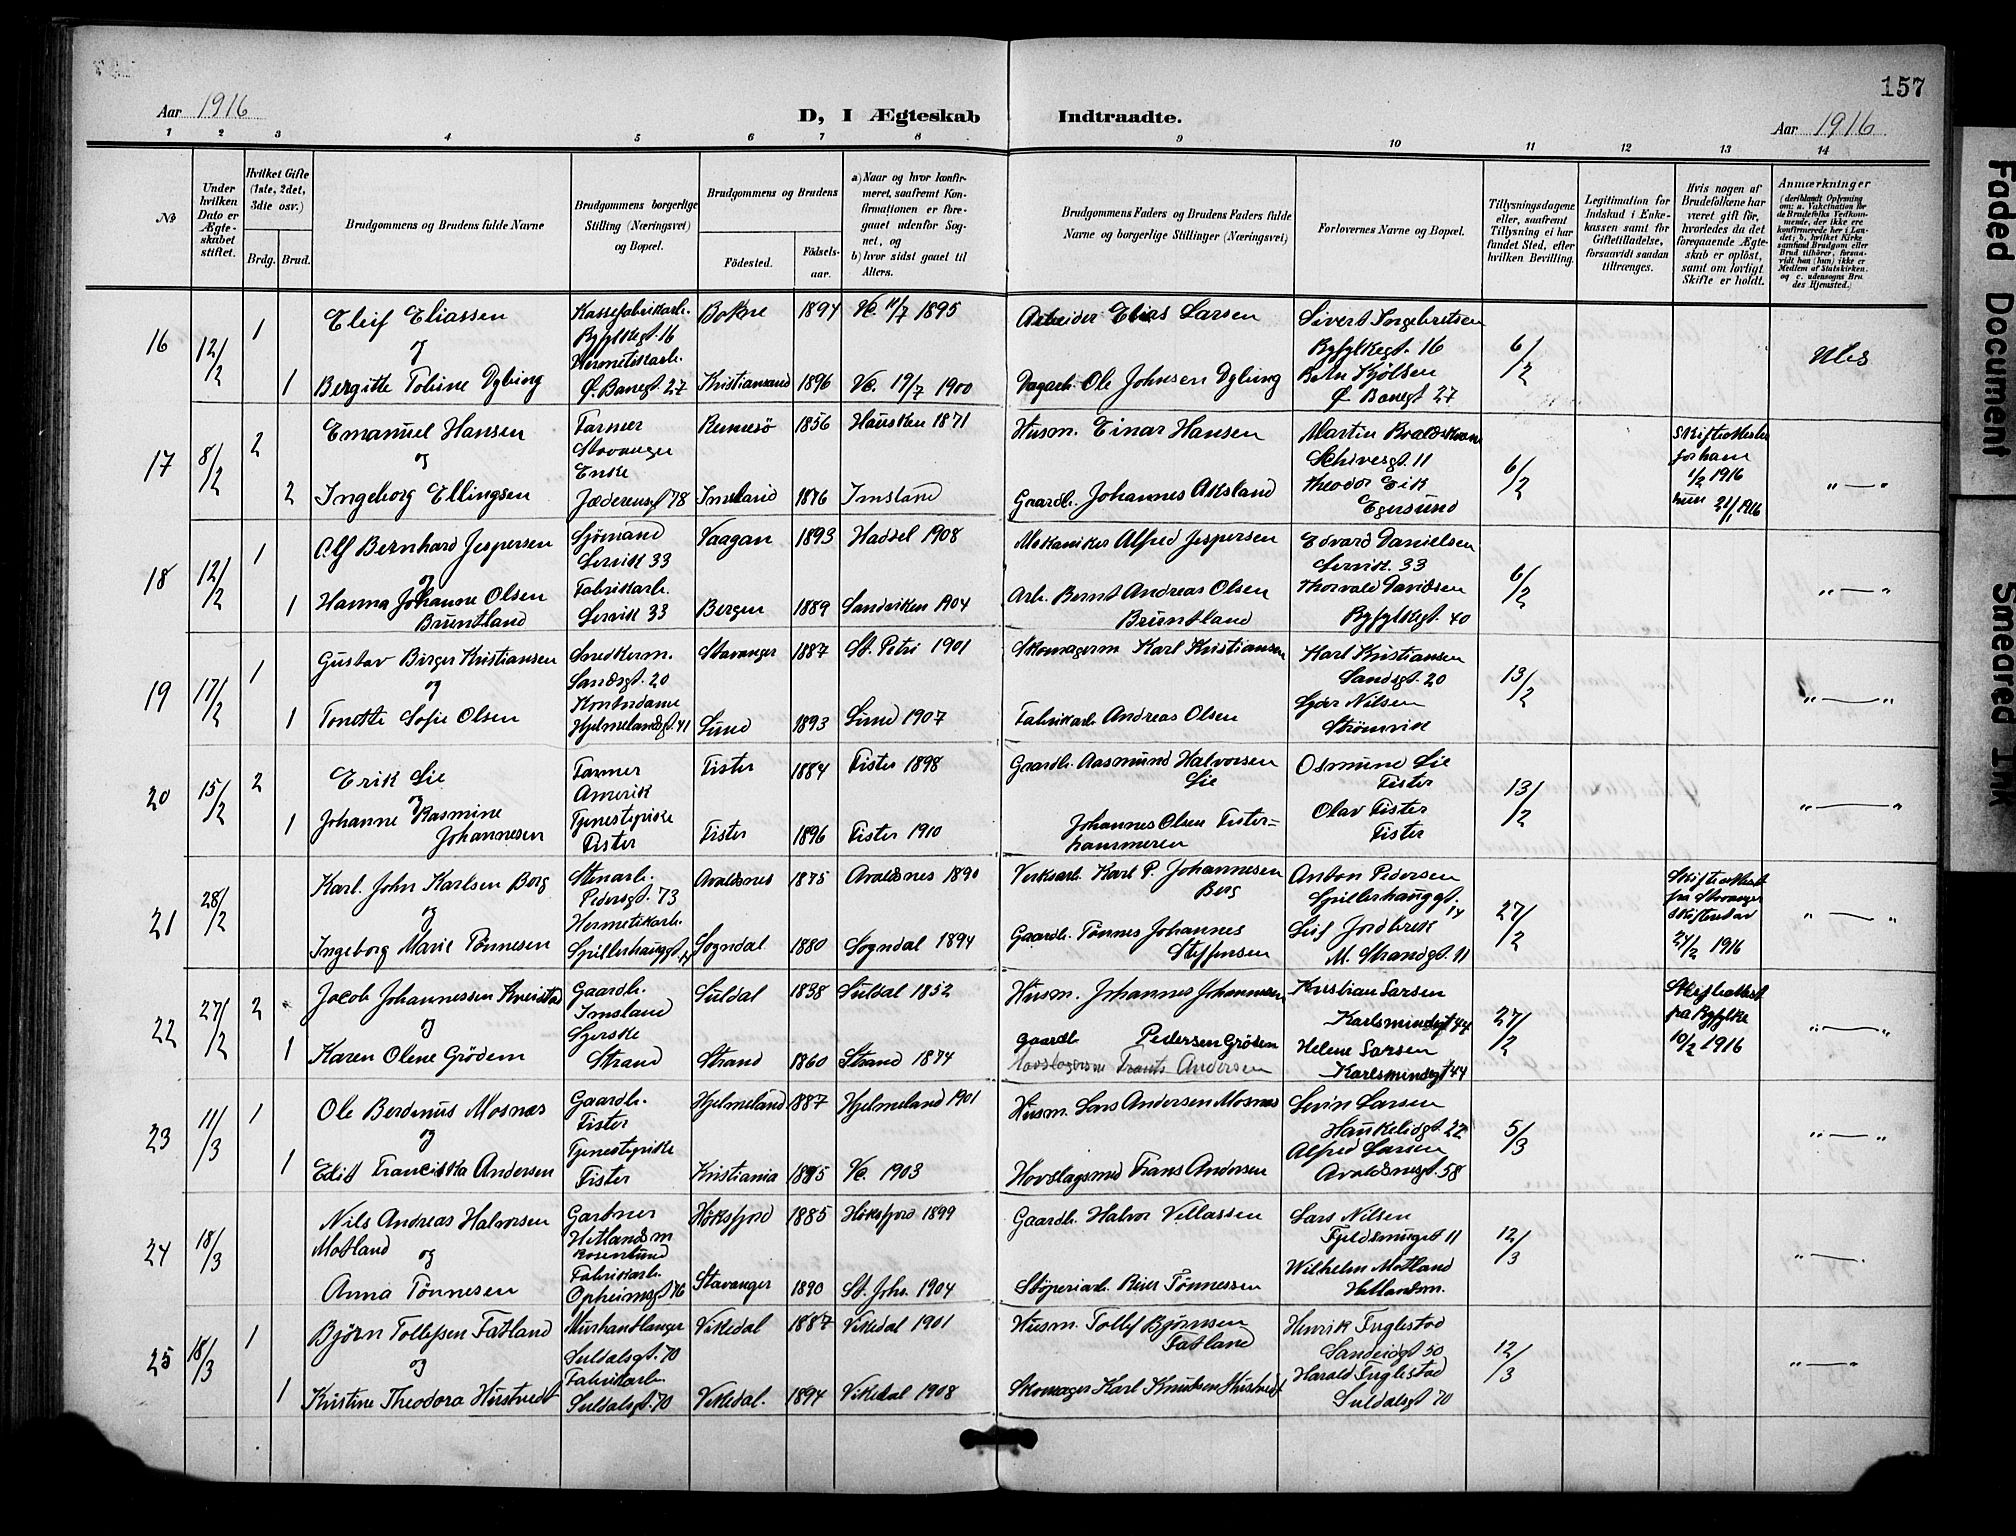 157
Aar 1916
D, I Ægteskab Indtraadte.
Aar 1916
1 2 3 4 5 6 7 8 9 10 11 12 13 14
№
Under hvilken Dato er Ægteskabet stiftet.
Hvilket Gifte (1ste, 2det, 3die osv.)
Brdg. Brud.
Brudgommens og Brudens fulde Navne
Brudgommens borgerlige Stilling (Næringsvei) og Bopæl.
Brudgommens og Brudens
Födested.
Födselsaar.
a) Naar og hvor konfirmeret, saafremt Konfirmationen er foregaaet udenfor Sognet, og
b) hvor sidst gaaet til Alters.
Brudgommens Faders og Brudens Faders fulde Navne og borgerlige Stillinger (Næringsvei)
Forlovernes Navne og Bopæl.
Tillysningsdagene eller, saafremt Tillysning ei har fundet Sted, efter hvilken Bevilling.
Legitimation for Indskud i Enkekassen samt for Giftetilladelse, forsaavidt saadan tiltrænges.
Hvis nogen af Brudefolkene har været gift før, hvorledes da det foregaaende Ægteskab er opløst, samt om lovligt Skifte er holdt.
Anmærkninger
(deriblandt Oplysning om: a. Vakcination for de Brudefolks Vedkommende, der ikke ere konfirmerede her i Landet; b. hvilket Kirkesamfund Brudgom eller Brud tilhører, forsaavidt han (hun) ikke er Medlem af Statskirken, og c. udensogns Brudes Hjemsted.)
16 12/2 1 Eleif Eliassen Kassefabrikarb. Bokne 1894 Vc. 11/7 1895 Arbeider Elias Larsen Sivert Ingebretsen
og Byfylkegt. 16 Byfylkegt. 16 6/2
Hermetikarb.
1 Bergitte Toline Dybing Ø. Banegt. 27 Kristiansand 1896 Vc. 19/7 1900 Dagarb. Ole Johnsen Dybing
Ø Banegt 27
17 8/2 2 Emanuel Hansen Farmer Rennesö 1856 Hausken 1871 Husm. Einar Hansen Martin
og Stavanger 11 6/2 1/2 1916
Enke
2 Ingeborg Ellingsen Jæderensgt 78 Imsland 1876 Imsland Gaardb. Johannes Aksland Theodor Eik
Egersund 21/1 1916 " — "
18 12/2 1 Alf Bernhard Jespersen Sjömand Vaagan 1893 Hadsel 1908 Mekaniker Alfred Jespersen Edvard Danielsen
og Lervik 33 Lervik. 33 6/2
1 Hanna Johanne Olsen Fabrikarb. Bergen 1889 Sandviken 1904 Arb. Bernt Andreas Olsen Thorvald Davidsen
Bruntland Lervik 33 Bruntland Byfylkegt. 40 " — "
19 17/2 1 Gustav Birger Kristiansen Snedkerm. Stavanger 1887 St. Petri 1901 Skomagerm Karl Kristiansen Karl Kristiansen
og Sandsgt. 20 Sandsgt. 20 13/2
Kontordame
1 Tonette Sofie Olsen Hjelmelandsgt. 41 Lund 1893 Lund 1907 Fabrikarb Andreas Olsen Nilsen
Strømvik " — "
20 15/2 2 Erik Lie Farmer Fister 1884 Fister 1898 Gaardb. Aasmund Halvorsen Lie Osmund Lie
og Amerik Fister 13/2
1 Johanne Rasmine Johannesen Tjenestepike Fister 1896 Fister 1910 Johannes Olsen Fister= hammeren Olav Fister
Fister Fister " — "
21 28/2 Karl. John Karlsen Berg Stenarb. Avaldsnes 1875 Avaldsnes 1890 Verksarb. Karl P. Johannesen Berg Anton Pedersen
og Pedersgt. 73 Spillerhauggt. 14 27/2
Hermetikarb.
Ingeborg Marie Tønnesen Spillerhauggt. 14 Sogndal 1880 Sogndal 1894 Gaardb. Tønnes Johannes Steffensen Leif Jordbrek
M. Strandgt. 11
Skifteattest fra Stavanger 24/2 1916 " — "
22 27/2 2 Jacob Johannessen Gaardb. Suldal 1838 Suldal 1852 Husm. Johannes Johannesen Kristian Larsen
og Imsland Karlsmindegt 44 27/2
1 Karen Olene Grödem Strand Strand 1860 Strand 1874 Gaardb. Pedersen Grödem Helene Larsen
Hovslagersm Frants Andersen Karlsmindegt 44
Skifteattest fra Ryfylke 10/2 1916 " — "
23 11/3 1 Ole Berdinus Mosnæs Gaardb. Hjelmeland 1887 Hjelmeland 1901 Husm. Lars Andersen Mosnæs Levin Larsen
og Fister Haukeligt. 22 5/3
1 Edit Franciska Andersen Tjenestepike Kristiania 1885 Vc. 1903 Hovslagsmed Frans Andersen Alfred Larsen
Fister Avaldsnesgt. 58 " — "
24 18/3 Nils Andreas Halvorsen Gartner Höksfjord 1885 Höksfjord 1899 Gaardb. Halvor Vellassen Lars Nilsen
Motland og Hetlandsm Rosenlund Fjeldsmuget 11 12/3
Anna Tönnesen Fabrikarb. Opheimsgt 76 Stavanger 1890 St. Johs. 1904 Støperiarb. Reier Tønnessen Wilhelm Motland
Hetlandsm. " —
25 18/3 1 Björn Tollefsen Fatland Murhandlanger Vikedal 1887 Vikedal 1901 Husm. Tollef Bjørnsen Fatland Henrik Fuglestad
og Suldalsgt. 70 Sandeidgt 50 12/3
1 Kristine Theodora Hustvedt Fabrikarb. Vikedal. 1894 Vikedal 1908 Skomager Karl Knudsen Hustvedt Harald Fuglestad
Suldalsgt. 70 Suldalsgt 70 " — "
Faded Document
Smeared Ink